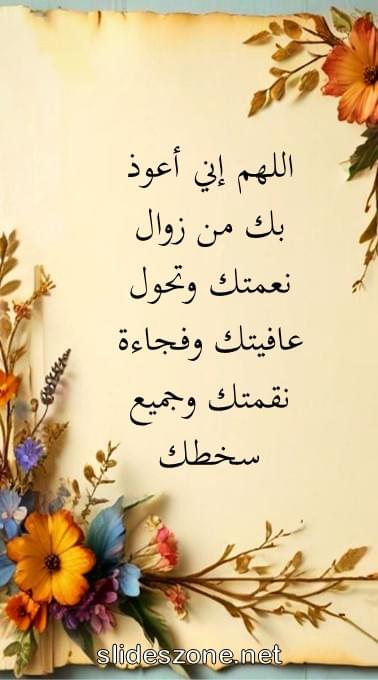 اللهم إني أعوذ
بك من زوال
نعمتك وتحول
عافيتك وفجاءة
نقمتك وجميع
سخطك
slideszone.net